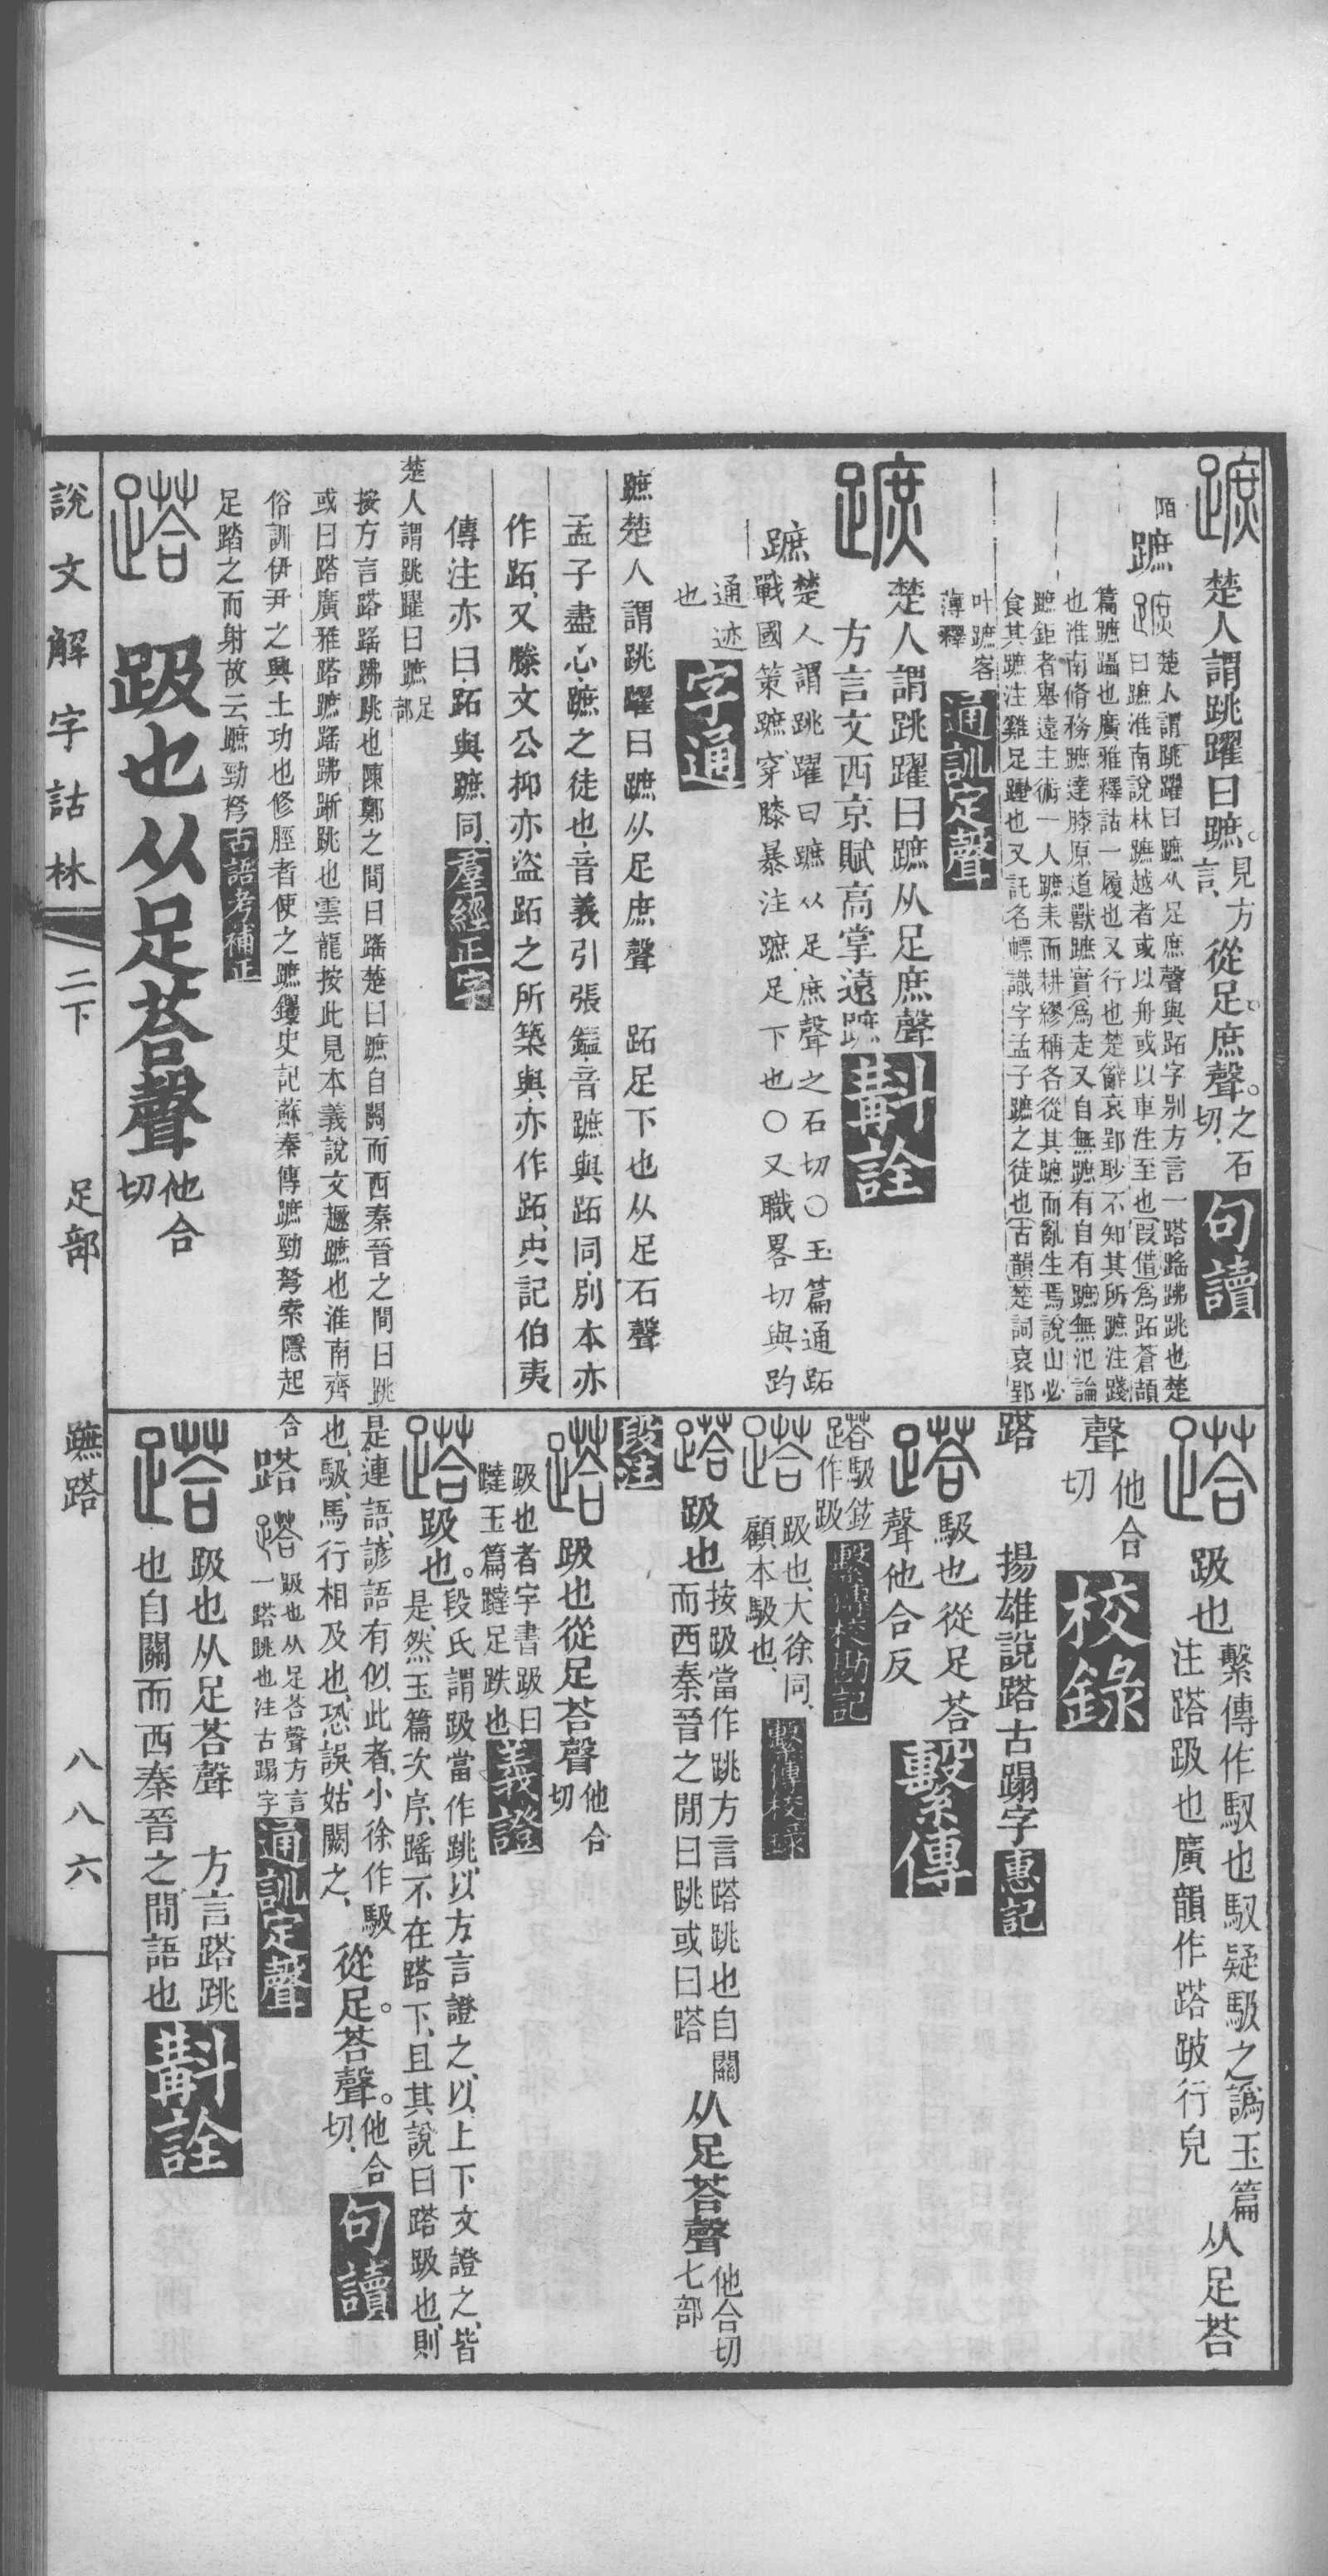 蹠 楚人謂跳躍曰蹠。見方言、從足。庶聲。之石切、 句讀
陌 蹠 蹠 楚人謂跳躍曰蹠从足庶聲與跖字别方言一䠛䠣跳也楚
曰蹠淮南說林蹠越者或以舟或以車注至也叚借爲跖蒼頡
篇蹠躡也廣雅釋詁一履也又行也楚辭哀郢眇不知其所蹠注踐
也淮南脩務蹠達膝原道獸蹠實爲走又自無蹠有自有蹠無氾論
蹠鉅者舉遠主術一人蹠耒而耕繆稱各從其蹠而亂生焉說山必
食其蹠注雞足踵也又託名幖識字孟子蹠之徒也古韻楚詞哀郢
叶蹠客薄釋 通訓定聲
蹠 楚人謂跳躍曰蹠从足庶聲
方言文西京賦高掌遠蹠 斠詮
蹠 楚人謂跳躍曰蹠从足庶聲之石切〇玉篇通跖
戰國策蹠穿膝暴注蹠足下也〇又職畧切與趵
通迹也 字通
蹠楚人謂跳躍曰蹠从足庶聲 跖足下也从足石聲
孟子盡心蹠之徒也音義引張鎰音蹠與跖同別本亦
作跖、又滕文公抑亦盜跖之所築與、亦作跖、史記伯夷
傳注亦曰、跖與蹠同、 羣經正字
楚人謂跳躍曰蹠 足部
按方言䠛跳也陳鄭之間曰楚曰蹠自關而西秦晉之間曰跳
或曰䠛廣雅䠛蹠跳也雲龍按此見本義說文蹠也淮南齊
俗訓伊尹之興土功也修脛者使之蹠钁史記蘇秦傳蹠勁弩索隱起
足踏之而射故云蹠勁弩 古語考補正
䠛 趿也从足荅聲 他合切
說文解字詁林 二下 足部 蹠䠛 八八六
䠛 趿也 繫傳作馭也馭疑馺之譌玉篇
注䠛趿也廣韻作䠛跛行皃 从足荅
聲 他合切 校錄
䠛 揚雄說䠛古蹋字 惠記
䠛 馺也從足荅
聲他合反 繫傳
䠛馺鉉作趿 繫傳校勘記
䠛 趿也、大徐同、
顧本馺也、 繫傳校錄
䠛 趿也 按趿當作跳方言䠛跳也自關
而西秦晉之閒曰跳或曰䠛 从足荅聲 他合切七部
段注
䠛 趿也從足荅聲 他合切
趿也者字書趿曰
躂玉篇躂足跌也 義證
䠛 趿也。段氏謂趿當作跳、以方言證之、以上下文證之、皆
是、然玉篇次序、不在䠛下、且其說曰䠛趿也、則
是連語、諺語有似此者、小徐作馺
也、馺、馬行相及也、恐誤、姑闕之、 從足。荅聲。他合切、 句讀
合 䠛 䠛 趿也从足荅聲方言
一䠛跳也注古蹋字 通訓定聲
䠛 趿也从足荅聲 方言䠛跳
也自關而西秦晉之間語也 斠詮